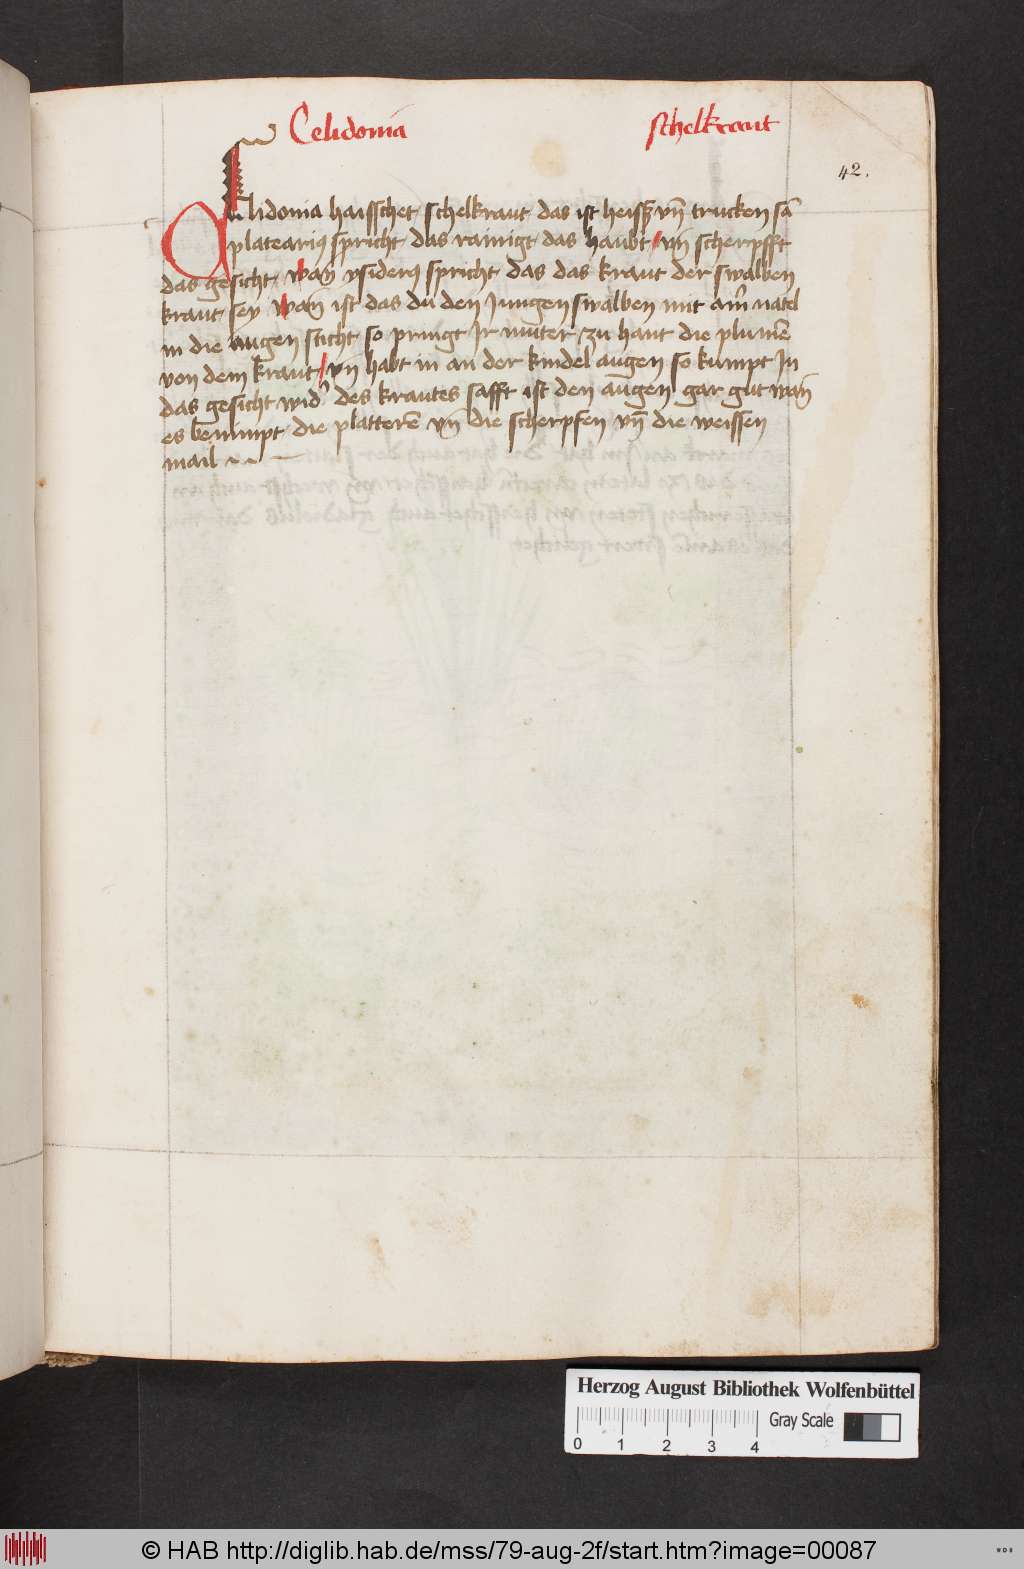 Celidonia schelkraut
42.
Celidonia haisschet schelkraut das ist heiss vn̄ trucken sā
platearius spricht das rainigt das haubt / vn̄ scherpfft
das gesicht wan̄ ysiderus spricht das das kraut der swalben
kraut sey wan̄ ist das du den Jungen swalben mit ainr natel
in die augen sticht so pringt Ir muter zu hant die plumē
von dem kraut / vn̄ habt in an der kindel augen so kumpt In
das gesicht wider des krautes safft ist den augen gar gut wan̄
es benimpt die platterē vn̄ die scherpfen vn̄ die weissen
mail
Herzog August Bibliothek Wolfenbüttel
Gray Scale
0 1 2 3 4
© HAB http://diglib.hab.de/mss/79-aug-2f/start.htm?image=00087